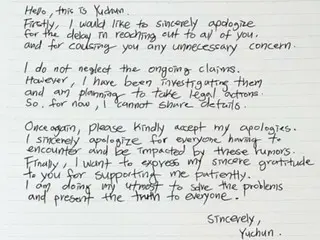 Hello, this is Yuchun.
Firstly, I would like to sincerely apologize
for the delay in reaching out to all of you.
and for causing you any unnecessary concern.
I do not neglect the ongoing claims.
However, I have been investigating them
and am planning to take legal actions.
So, for now, I cannot share details.
Once again, please kindly accept my apologies.
I sincerely apologize for everyone having to
encounter and be impacted by these rumors.
Finally, I want to express my sincere gratitude
to you for supporting me patiently.
I am doing my utmost to solve the problems
and present the truth to everyone.
Sincerely,
Yuchun.